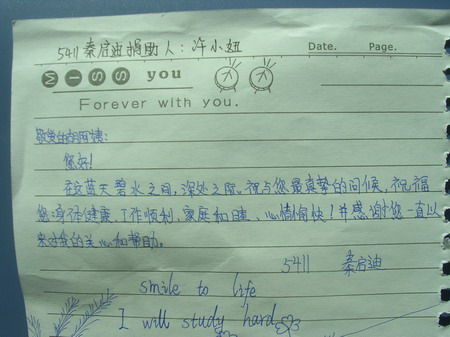 5411 秦启迪捐助人：许小妞
Date. Page.
MISS you
Forever with you.
敬爱的
您好！
在这蓝天碧水之间，深处之际，祝与您最真挚的问候，祝福
您身体健康、工作顺利、家庭和睦、心情愉快！并感谢您一直以
来对我的关心和帮助。
5411 秦启迪
smile to life
I will study hard